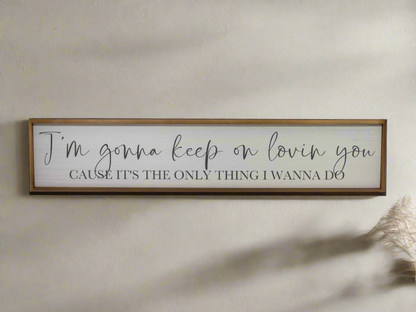 I'm gonna keep on lovin you
CAUSE IT'S THE ONLY THING I WANNA DO